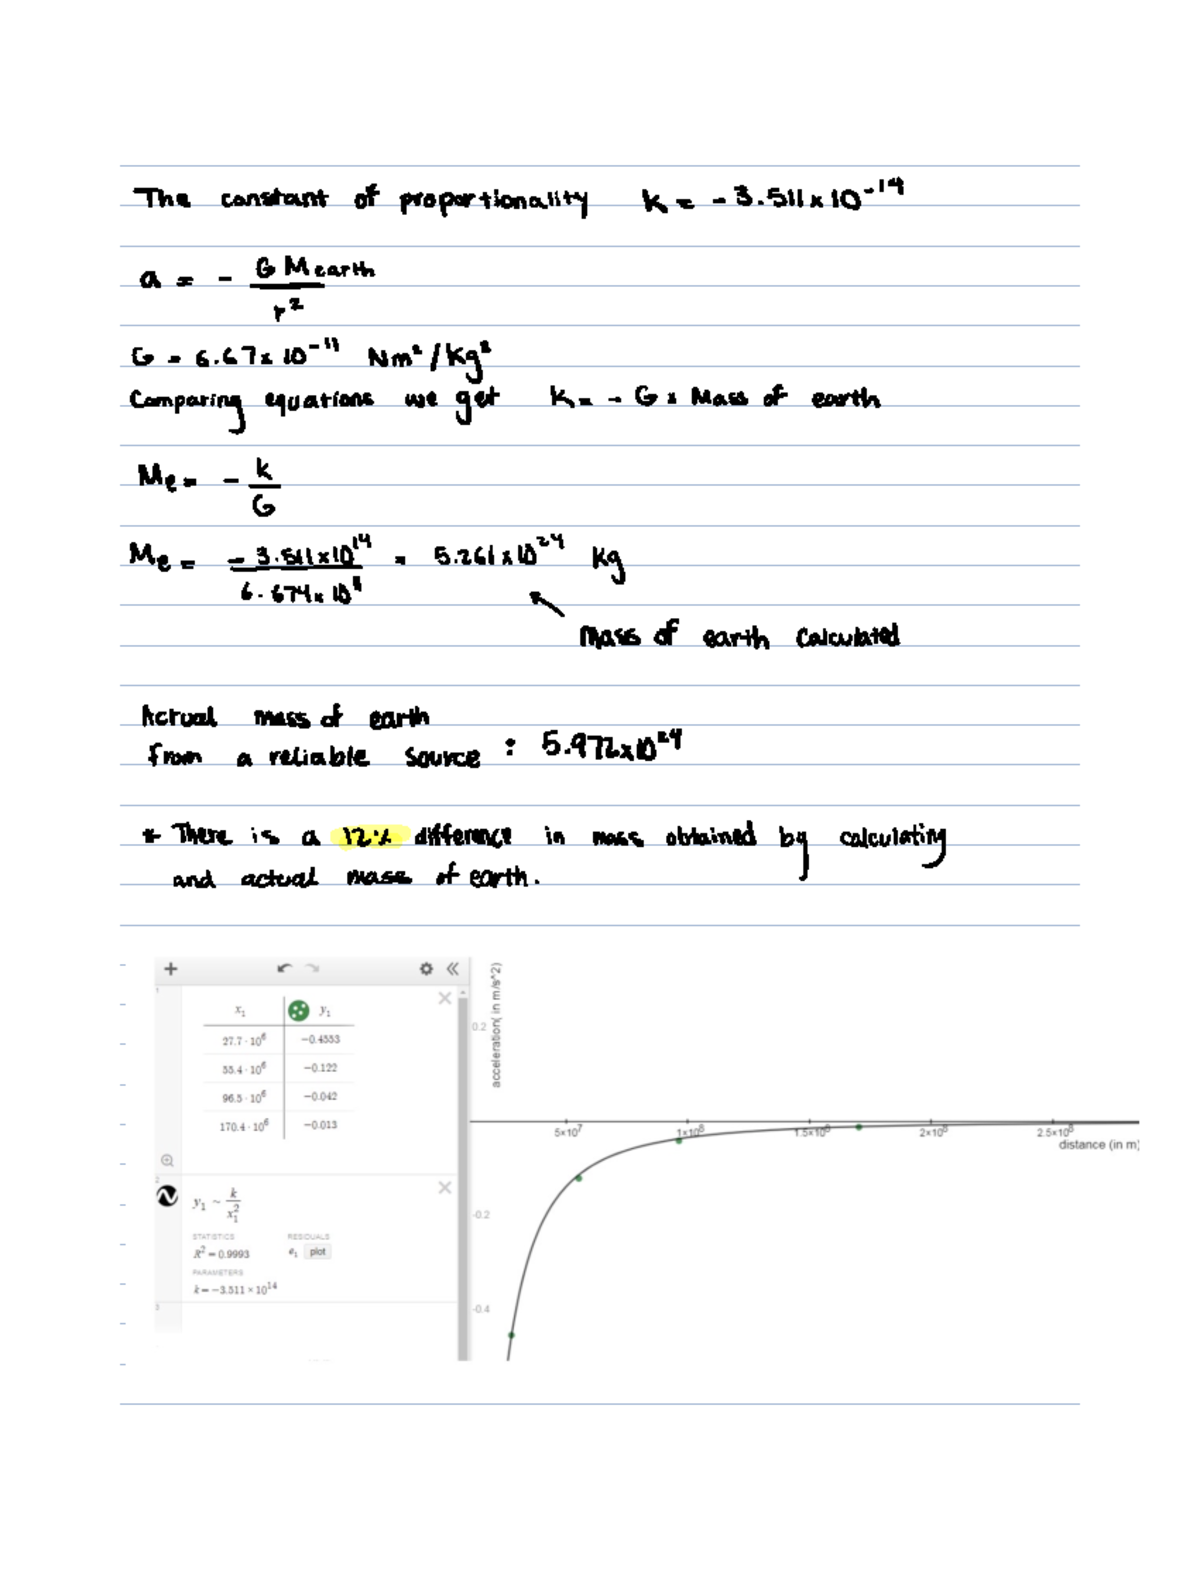 The constant of proportionality k = - 3.511 x 10^-14
a = - G Mearth / r²
G = 6.67 x 10^-11 Nm²/Kg²
Comparing equations we get K = - G x Mass of earth
Me = - k / G
Me = - 3.511 x 10^14 / 6.674 x 10 = 5.261 x 10^24 Kg
Mass of earth Calculated
Actual mass of earth
from a reliable source : 5.972 x 10^24
* There is a 12% difference in mass obtained by calculating
and actual mass of earth.
1
x₁ y₁
27.7 · 10^6 −0.4553
55.4 · 10^6 −0.122
96.5 · 10^6 −0.042
170.4 · 10^6 −0.013
2
y₁ ~ k / x₁²
STATISTICS RESIDUALS
R² = 0.9993 e₁ plot
PARAMETERS
k = −3.511 × 10^14
3
acceleration( in m/s^2)
0.2
5×10^7 1×10^8 1.5×10^8 2×10^8 2.5×10^8
distance (in m)
-0.2
-0.4